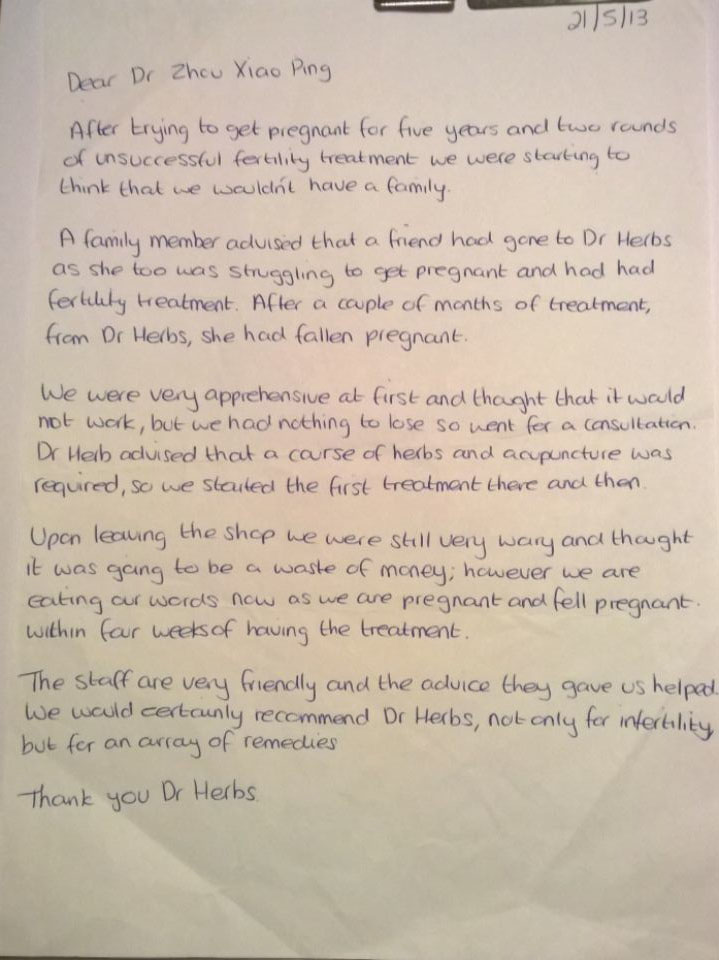 21/5/13
Dear Dr Zhou Xiao Ping
After trying to get pregnant for five years and two rounds
of unsuccessful fertility treatment we were starting to
think that we wouldn't have a family.
A family member advised that a friend had gone to Dr Herbs
as she too was struggling to get pregnant and had had
fertility treatment. After a couple of months of treatment,
from Dr Herbs, she had fallen pregnant.
We were very apprehensive at first and thought that it would
not work, but we had nothing to lose so went for a consultation.
Dr Herb advised that a course of herbs and acupuncture was
required, so we started the first treatment there and then.
Upon leaving the shop we were still very wary and thought
it was going to be a waste of money; however we are
eating our words now as we are pregnant and fell pregnant.
within four weeks of having the treatment.
The staff are very friendly and the advice they gave us helped.
We would certainly recommend Dr Herbs, not only for infertility,
but for an array of remedies
Thank you Dr Herbs.